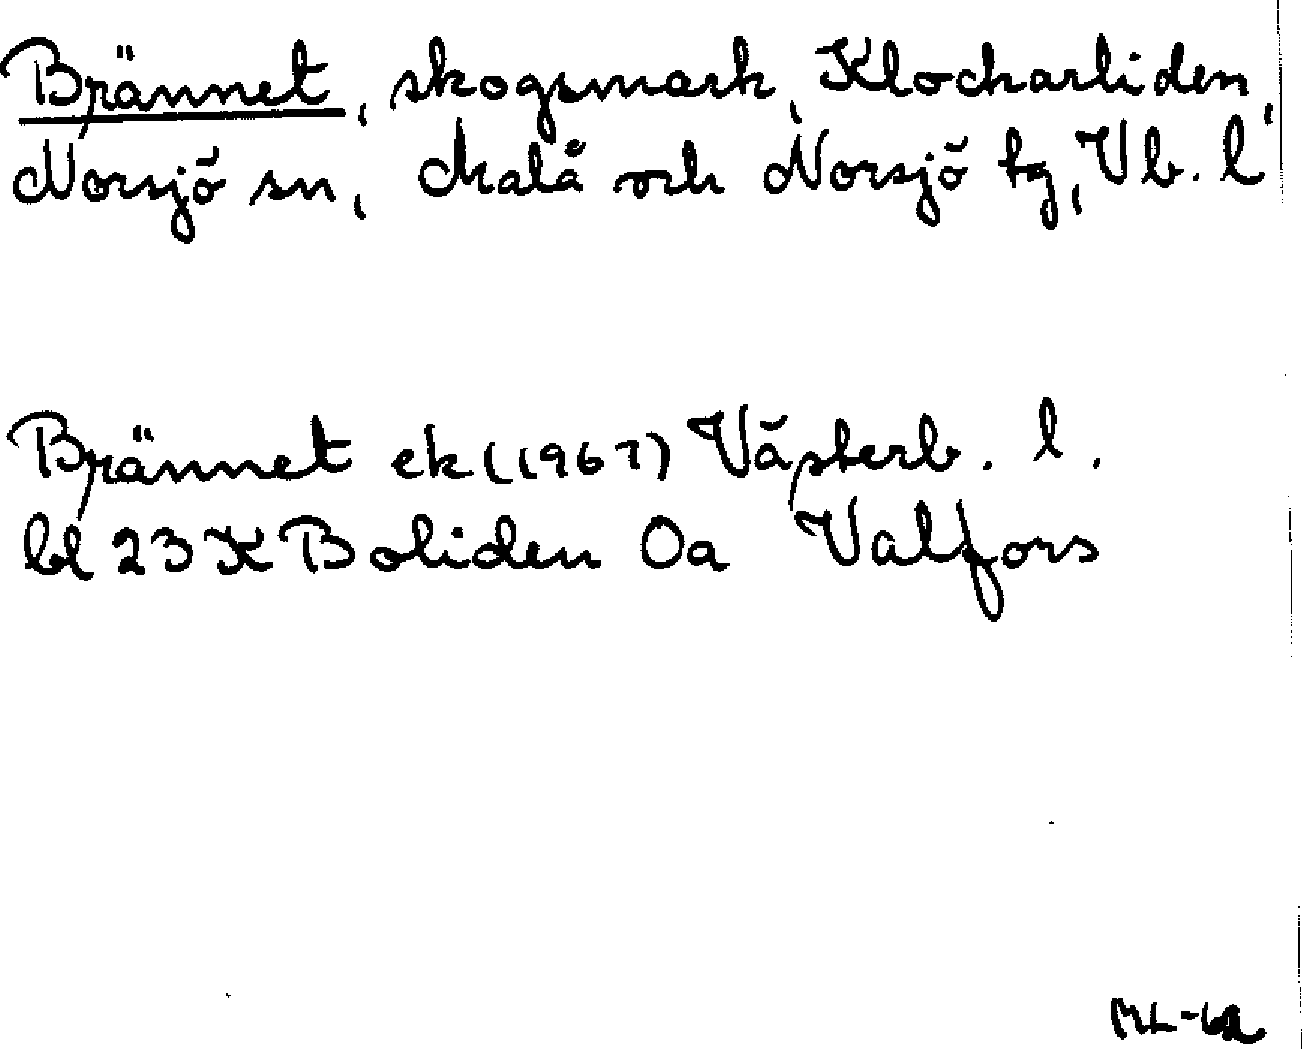 Brännet, skogsmark, Klockarliden,
Norsjö sn, Malå och Norsjö tg, Vb. l
Brännet ek (1967) Västerb. l.
bl 23 K Boliden 0a Valfors